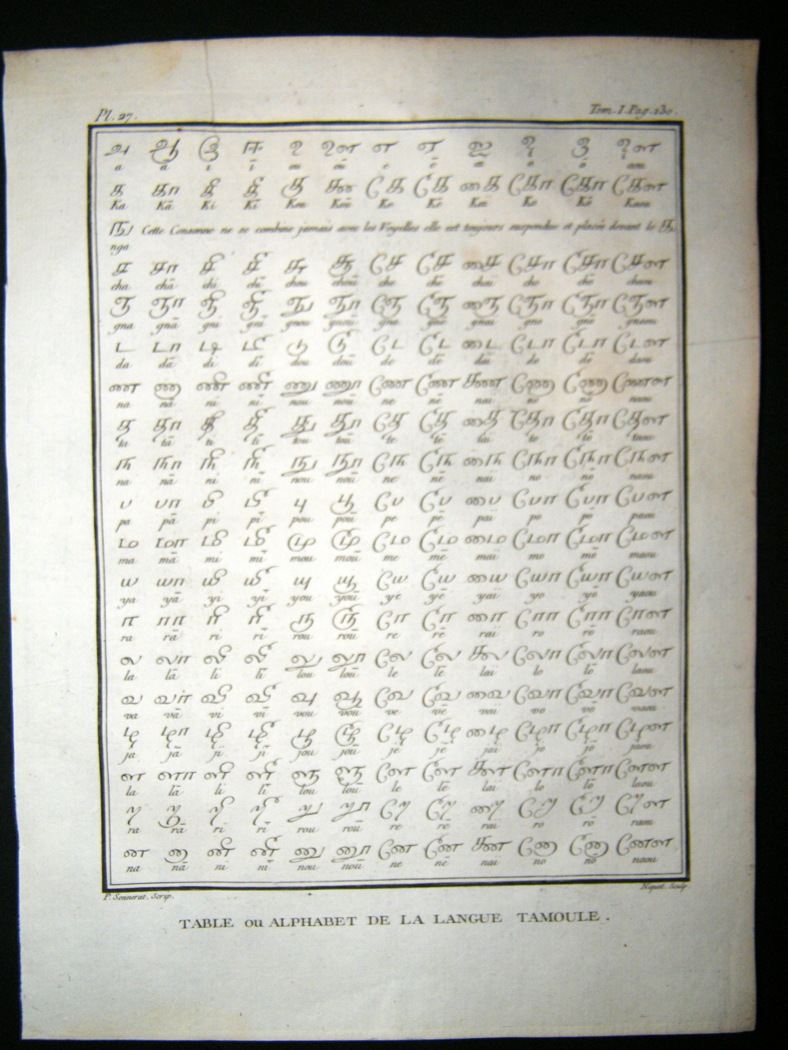 Pl. 27.
Tom. I. Pag. 130.
அ ஆ இ ஈ உ ஊ எ ஏ ஐ ஒ ஓ ஔ
a ā i ī
க கா கி கீ கு கூ கெ கே கை கொ கோ கௌ
Ka Kā Ki Kī Kou Koū Ke Kē Kai Ko Kō Kaou
ங Cette Consonne ne se combine jamais avec les Voyelles elle est toujours suspendue et placée devant le க
nga
ச சா சி சீ சு சூ செ சே சை சொ சோ சௌ
cha chā chi chī chou choū che chē chai cho chō chaou
ஞ ஞா ஞி ஞீ ஞு ஞூ ஞெ ஞே ஞை ஞொ ஞோ ஞௌ
gna gnā gni gnī gnou gnoū gne gnē gnai gno gnō gnaou
ட டா டி டீ டு டூ டெ டே டை டொ டோ டௌ
da dā di dī dou doū de dē dai do dō daou
ண ணா ணி ணீ ணு ணூ ணெ ணே ணை ணொ ணோ ணௌ
na nā ni nī nou noū ne nē nai no nō naou
த தா தி தீ து தூ தெ தே தை தொ தோ தௌ
ta tā ti tī tou toū te tē tai to tō taou
ந நா நி நீ நு நூ நெ நே நை நொ நோ நௌ
na nā ni nī nou noū ne nē nai no nō naou
ப பா பி பீ பு பூ பெ பே பை பொ போ பௌ
pa pā pi pī pou poū pe pē pai po pō paou
ம மா மி மீ மு மூ மெ மே மை மொ மோ மௌ
ma mā mi mī mou moū me mē mai mo mō maou
ய யா யி யீ யு யூ யெ யே யை யொ யோ யௌ
ya yā yi yī you yoū ye yē yai yo yō yaou
ர ரா ரி ரீ ரு ரூ ரெ ரே ரை ரொ ரோ ரௌ
ra rā ri rī rou roū re rē rai ro rō raou
ல லா லி லீ லு லூ லெ லே லை லொ லோ லௌ
la lā li lī lou loū le lē lai lo lō laou
வ வா வி வீ வு வூ வெ வே வை வொ வோ வௌ
va vā vi vī vou voū ve vē vai vo vō vaou
ழ ழா ழி ழீ ழு ழூ ழெ ழே ழை ழொ ழோ ழௌ
ja jā ji jī jou joū je jē jai jo jō jaou
ள ளா ளி ளீ ளு ளூ ளெ ளே ளை ளொ ளோ ளௌ
la lā li lī lou loū le lē lai lo lō laou
ற றா றி றீ று றூ றெ றே றை றொ றோ றௌ
ra rā ri rī rou roū re rē rai ro rō raou
ன னா னி னீ னு னூ னெ னே னை னொ னோ னௌ
na nā ni nī nou noū ne nē nai no nō naou
P. Sonnerat. Scrip.
Niquet. Sculp.
TABLE ou ALPHABET DE LA LANGUE TAMOULE.